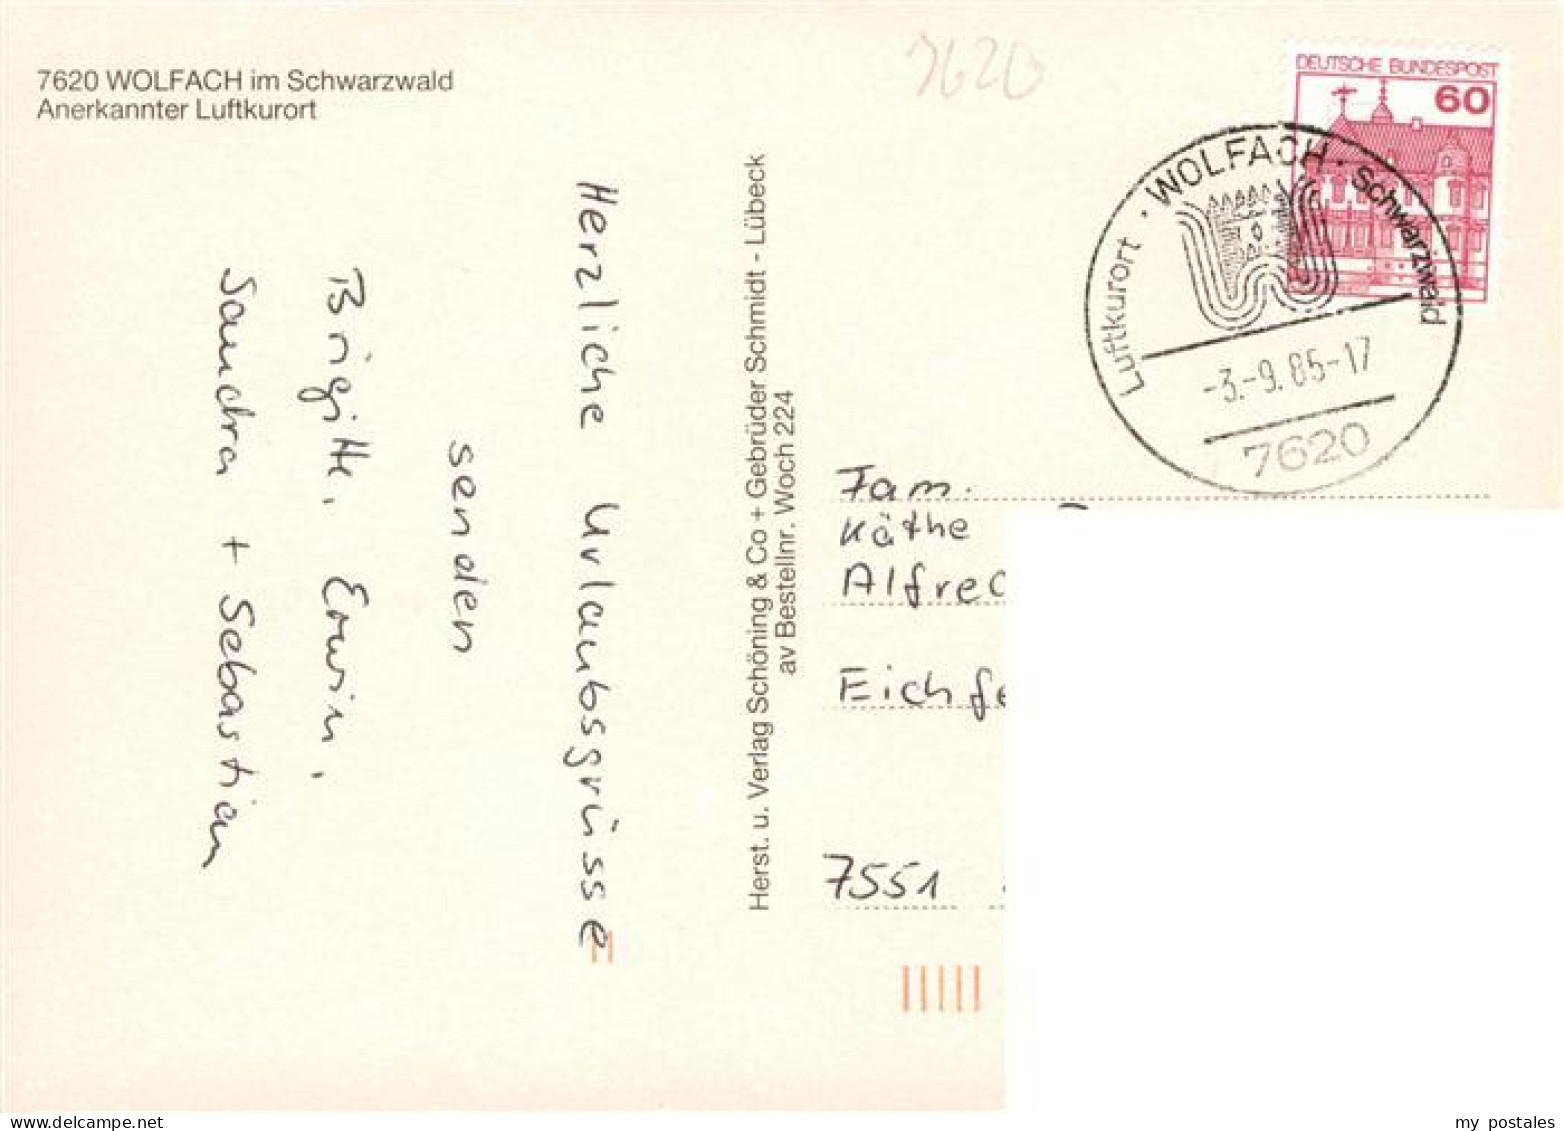 7620 WOLFACH im Schwarzwald
Anerkannter Luftkurort
7620
DEUTSCHE BUNDESPOST
60
Luftkurort · WOLFACH · Schwarzwald
-3.-9.85-17
7620
Herzliche Urlaubsgrüsse
senden
Brigitte, Erwin,
Sandra + Sebastian
Herst. u. Verlag Schöning & Co + Gebrüder Schmidt - Lübeck
av Bestellnr. Woch 224
Fam.
Käthe
7551
my postales